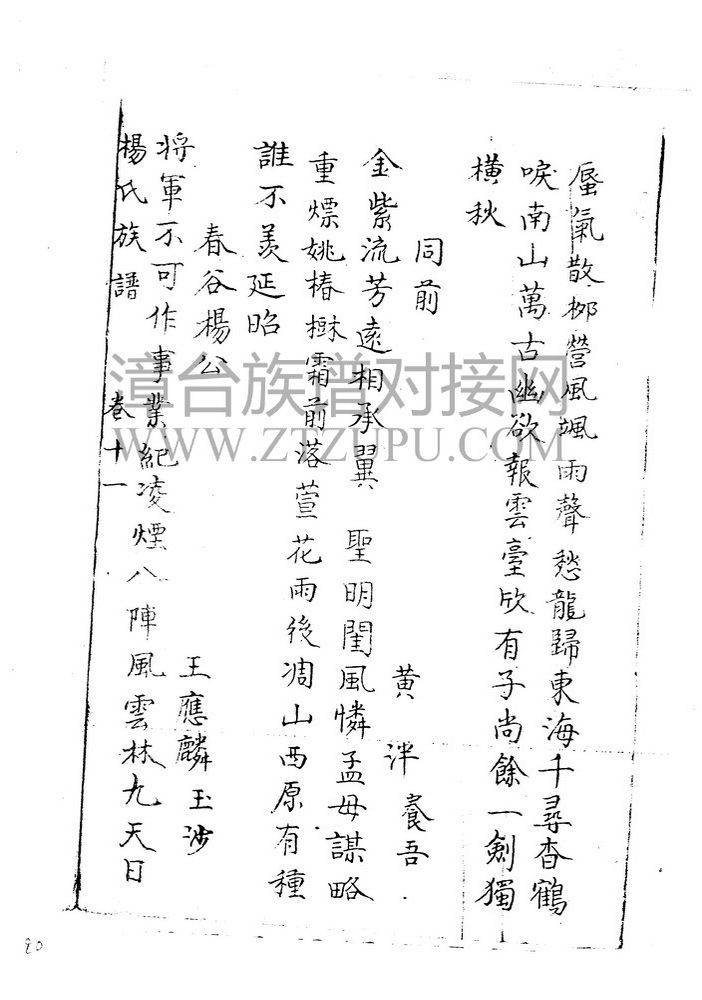 蜃氣散柳營風颯雨聲愁龍歸東海千尋杳鶴
唳南山萬古幽欲報雲臺欣有子尚餘一劍獨
橫秋
同前
黃泮養吾
金紫流芳遠相承翼 聖明閨風憐孟母謀略
重嫖姚椿樹霜前落萱花雨後凋山西原有種
誰不羨延昭
春谷楊公
王應麟玉沙
將軍不可作事業紀凌煙八陣風雲林九天日
楊氏族譜 卷十一
漳台族谱对接网
WWW.ZTZUPU.COM
80